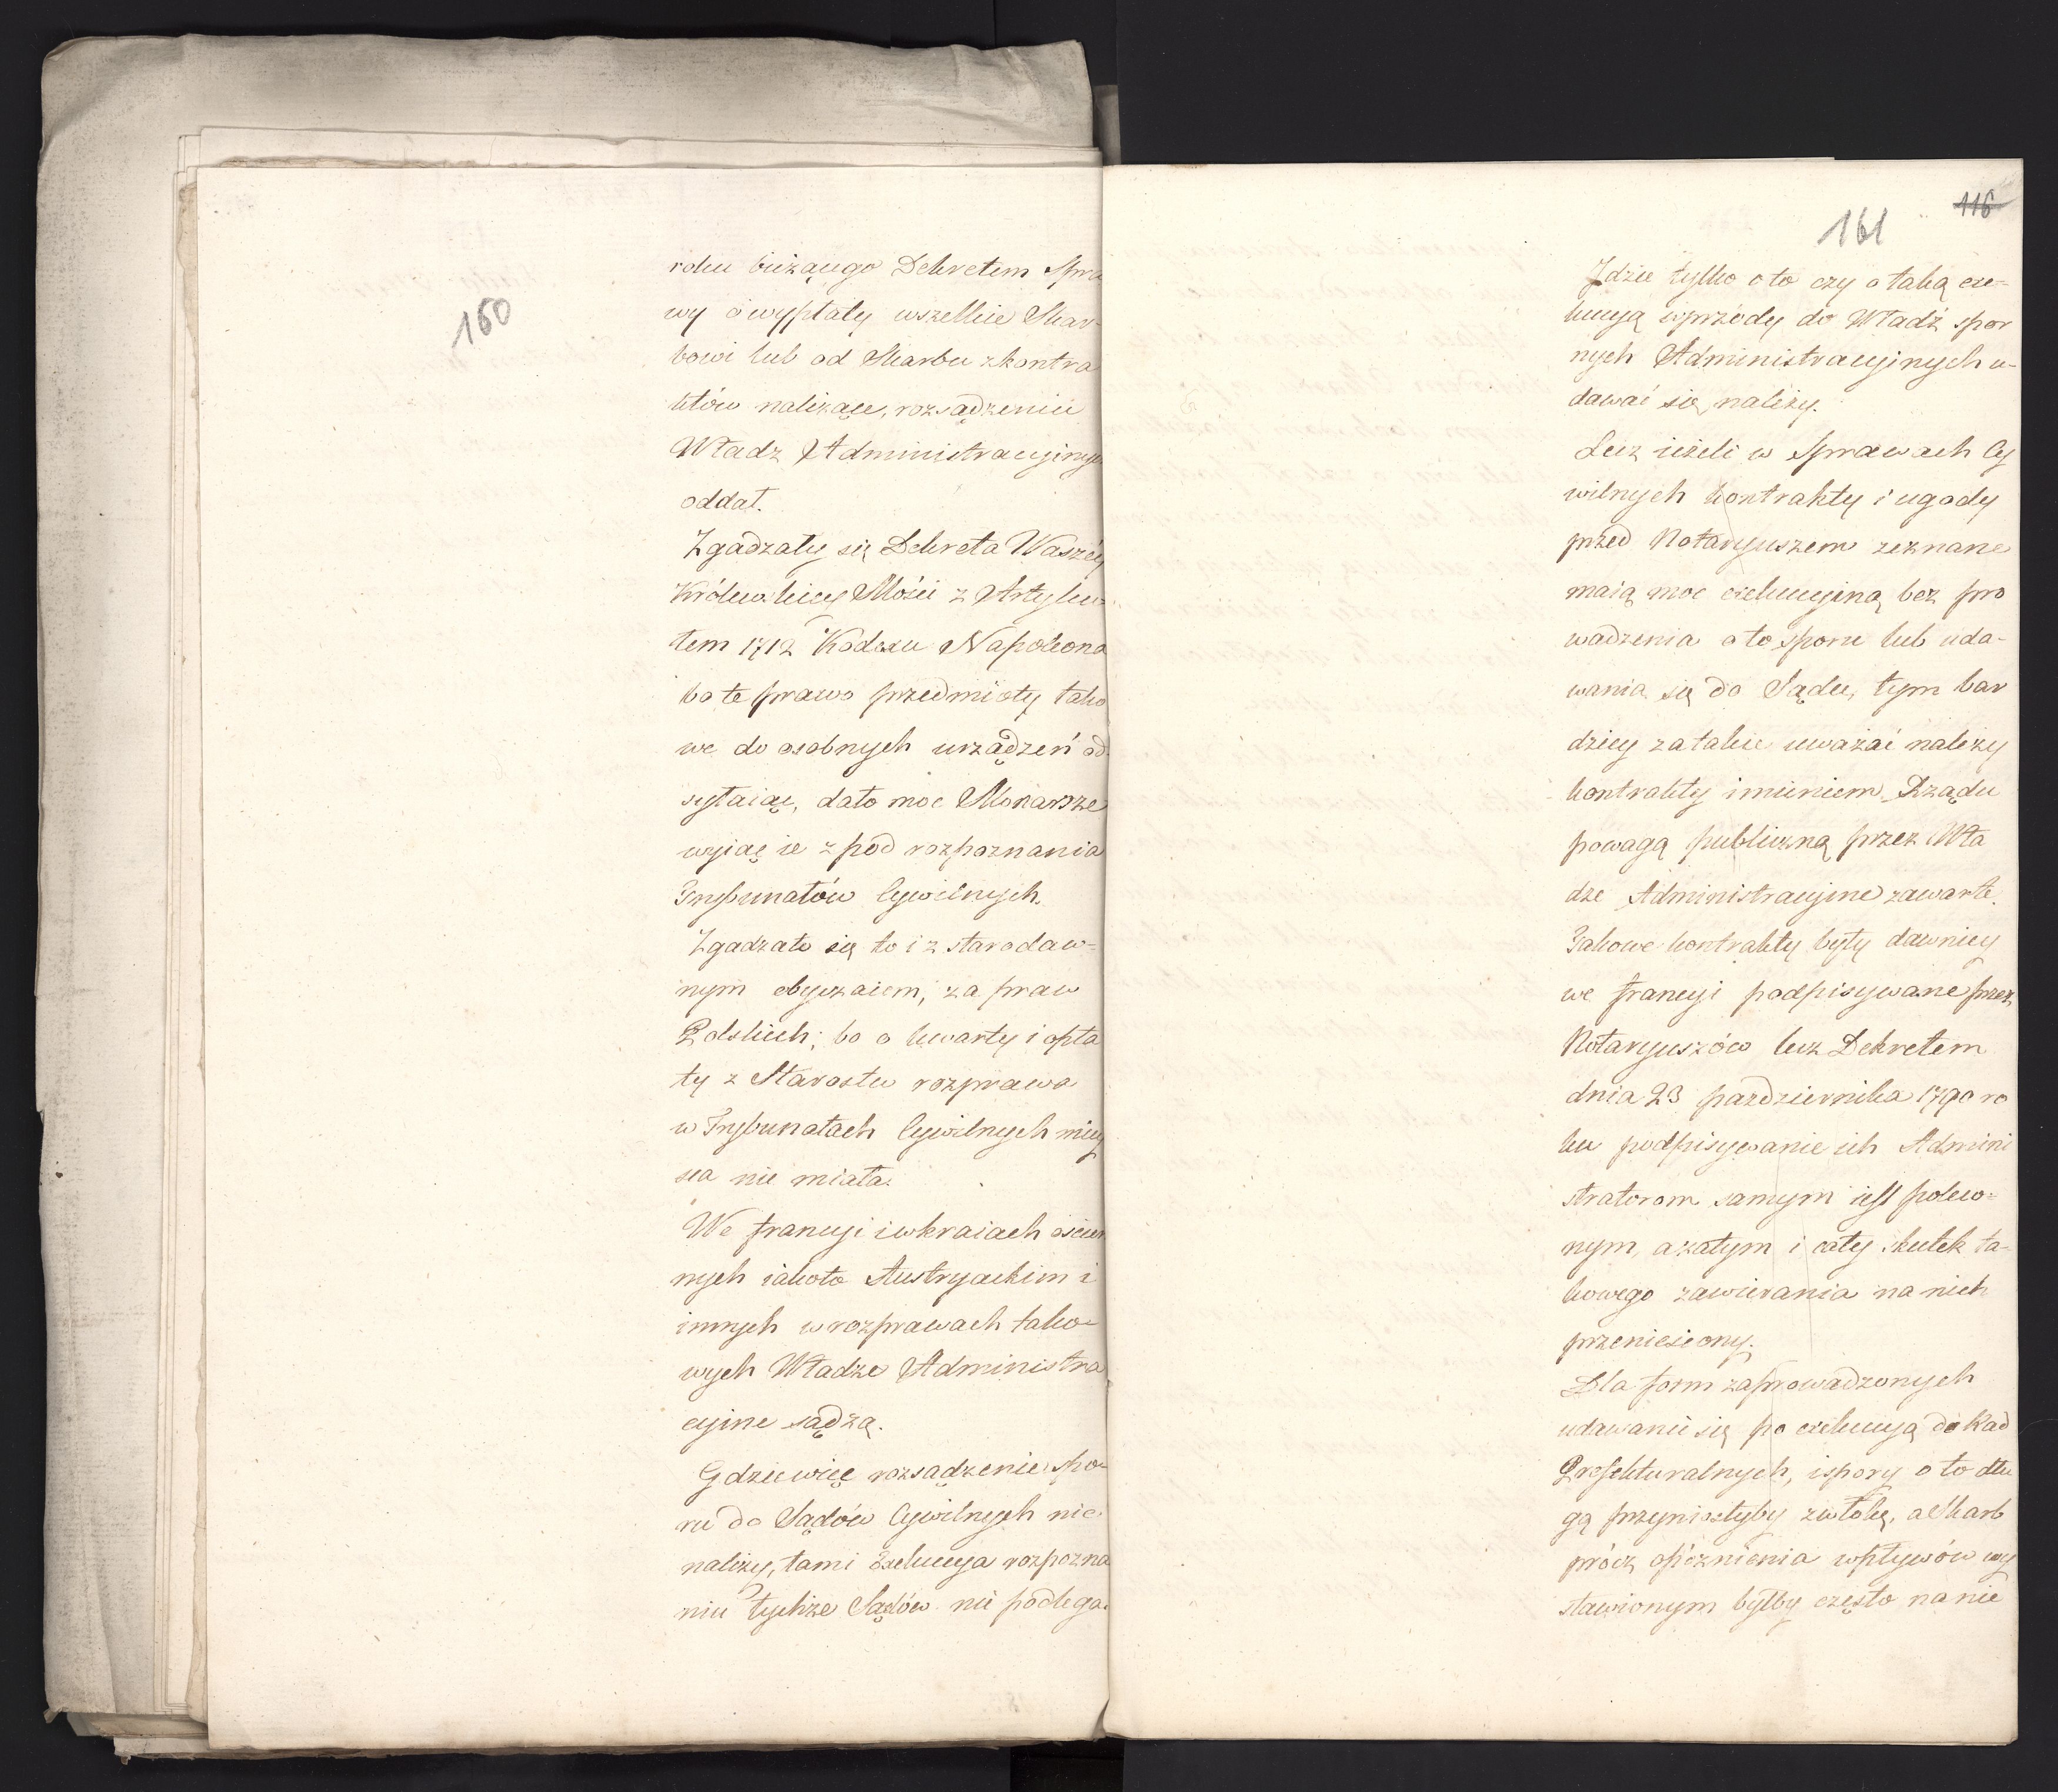 160
roku bieżącego Dekretem Spra
wy o wypłaty wszelkie Skar-
bowi lub od Skarbu z kontra
któw należące, rozsądzeniu
Władz Administracyinych
oddał.
Zgadzały się Dekreta Waszéy
Królewskiey Mości z Artyku-
łem 1712 Kodexu Napoleona
bo te prawo przedmioty tako
we do osobnych urządzeń od
syłaiąc, dało moc Monarsze
wyiąć ie z pod rozpoznania
Trybunałów Cywilnych.
Zgadzało się to i z starodaw=
nym obyczaiem, za praw
Polskich; bo o kwarty i opła
ty z Starostw rozprawa
w Trybunałach Cywilnych miey
sca nie miała.
We francyi i w kraiach oscien
nych iakoto Austryackim i
innych w rozprawach tako-
wych Władze Administra
cyine sądzą.
Gdzie więc rozsądzenie spo-
ru do Sądów Cywilnych nie
należy, tam i Exekucya rozpozna
niu tychże Sądów nie podlega.
161
116
Jdzie tylko o to czy o taką exe-
kucyą wprzódy do Władź spor
nych Administracyinych u-
dawać się należy.
Lecz ieżeli w Sprawach Cy
wilnych kontrakty i ugody
przed Notaryuszem zeznane
maią moc exekucyiną bez pro
wadzenia o to sporu lub uda-
wania się do Sądu, tym bar
dziey za takie uważać należy
kontrakty imieniem Rządu
powagą publiczną przez Wła
dze Administracyine zawarte.
Takowe kontrakty były dawniey
we francyi podpisywane przez
Notaryuszów lecz Dekretem
dnia 23 pazdziernika 1790 ro
ku podpisywanie ich Admini
stratorom samym iest polco-
nym, a zatym i cały skutek ta-
kowego zawierania na nich
przeniesiony.
Dla form zaprowadzonych
udawanie się po exekucyą do Rad
Prefekturalnych, i spory o to dłu
gą przyniosłyby zwłokę, a Skarb
prócz opóznienia wpływów wy
stawionym byłby często na nie